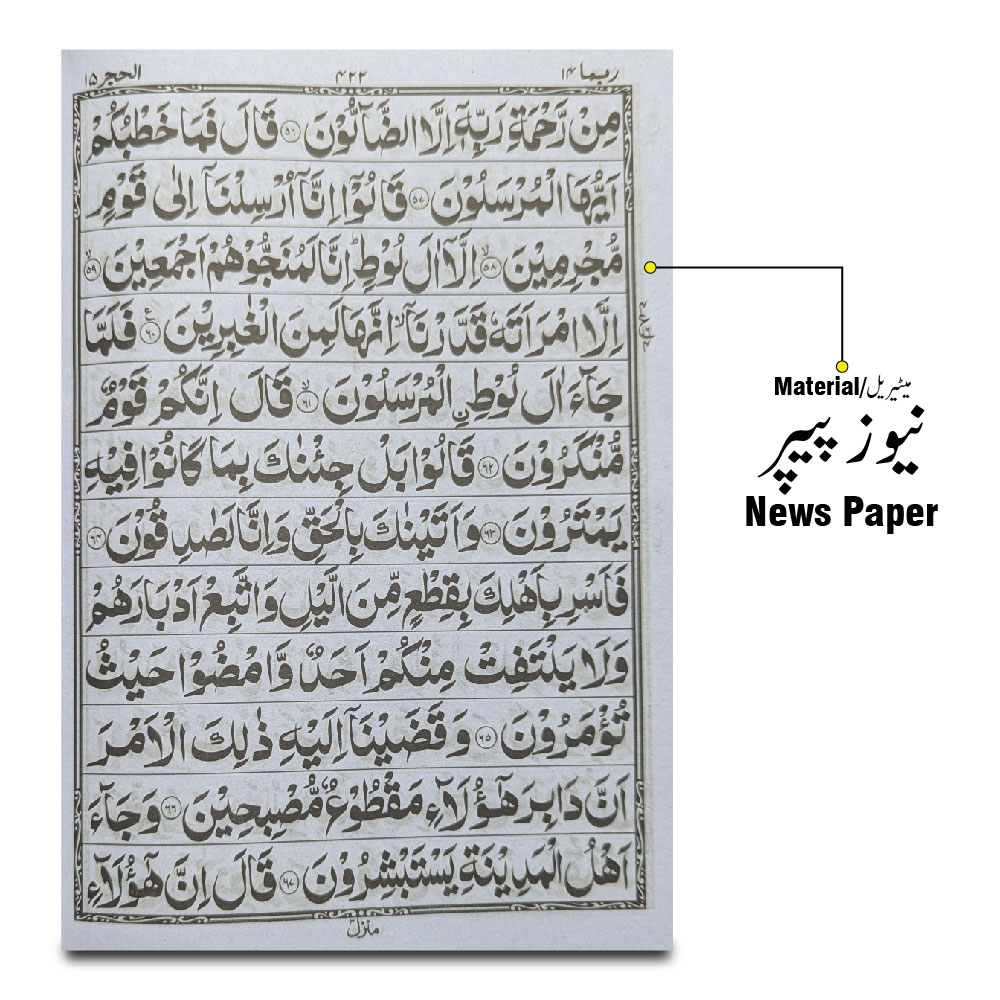 ربما ١٤ ٤٢٢ الحجر ١٥
مِنْ رَّحْمَةِ رَبِّهٖۤ اِلَّا الضَّآلُّوْنَ ﴿۵۶﴾ قَالَ فَمَا خَطْبُكُمْ
اَيُّهَا الْمُرْسَلُوْنَ ﴿۵۷﴾ قَالُوْۤا اِنَّاۤ اُرْسِلْنَاۤ اِلٰى قَوْمٍ
مُّجْرِمِيْنَ ۙ﴿۵۸﴾ اِلَّاۤ اٰلَ لُوْطٍ ؕ اِنَّا لَمُنَجُّوْهُمْ اَجْمَعِيْنَ ۙ﴿۵۹﴾
اِلَّا امْرَاَتَهٗ قَدَّرْنَاۤ ۙ اِنَّهَا لَمِنَ الْغٰبِرِيْنَ ﴿۶۰﴾ ع فَلَمَّا
جَآءَ اٰلَ لُوْطِ ِۨ الْمُرْسَلُوْنَ ۙ﴿۶۱﴾ قَالَ اِنَّكُمْ قَوْمٌ
مُّنْكَرُوْنَ ﴿۶۲﴾ قَالُوْا بَلْ جِئْنٰكَ بِمَا كَانُوْا فِيْهِ
يَمْتَرُوْنَ ﴿۶۳﴾ وَ اَتَيْنٰكَ بِالْحَقِّ وَ اِنَّا لَصٰدِقُوْنَ ﴿۶۴﴾
فَاَسْرِ بِاَهْلِكَ بِقِطْعٍ مِّنَ الَّيْلِ وَ اتَّبِعْ اَدْبَارَهُمْ
وَلَا يَلْتَفِتْ مِنْكُمْ اَحَدٌ وَّ امْضُوْا حَيْثُ
تُؤْمَرُوْنَ ﴿۶۵﴾ وَ قَضَيْنَاۤ اِلَيْهِ ذٰلِكَ الْاَمْرَ
اَنَّ دَابِرَ هٰۤؤُلَآءِ مَقْطُوْعٌ مُّصْبِحِيْنَ ﴿۶۶﴾ وَ جَآءَ
اَهْلُ الْمَدِيْنَةِ يَسْتَبْشِرُوْنَ ﴿۶۷﴾ قَالَ اِنَّ هٰۤؤُلَآءِ
منزل
Material/میٹیریل
نیوز پیپر
News Paper